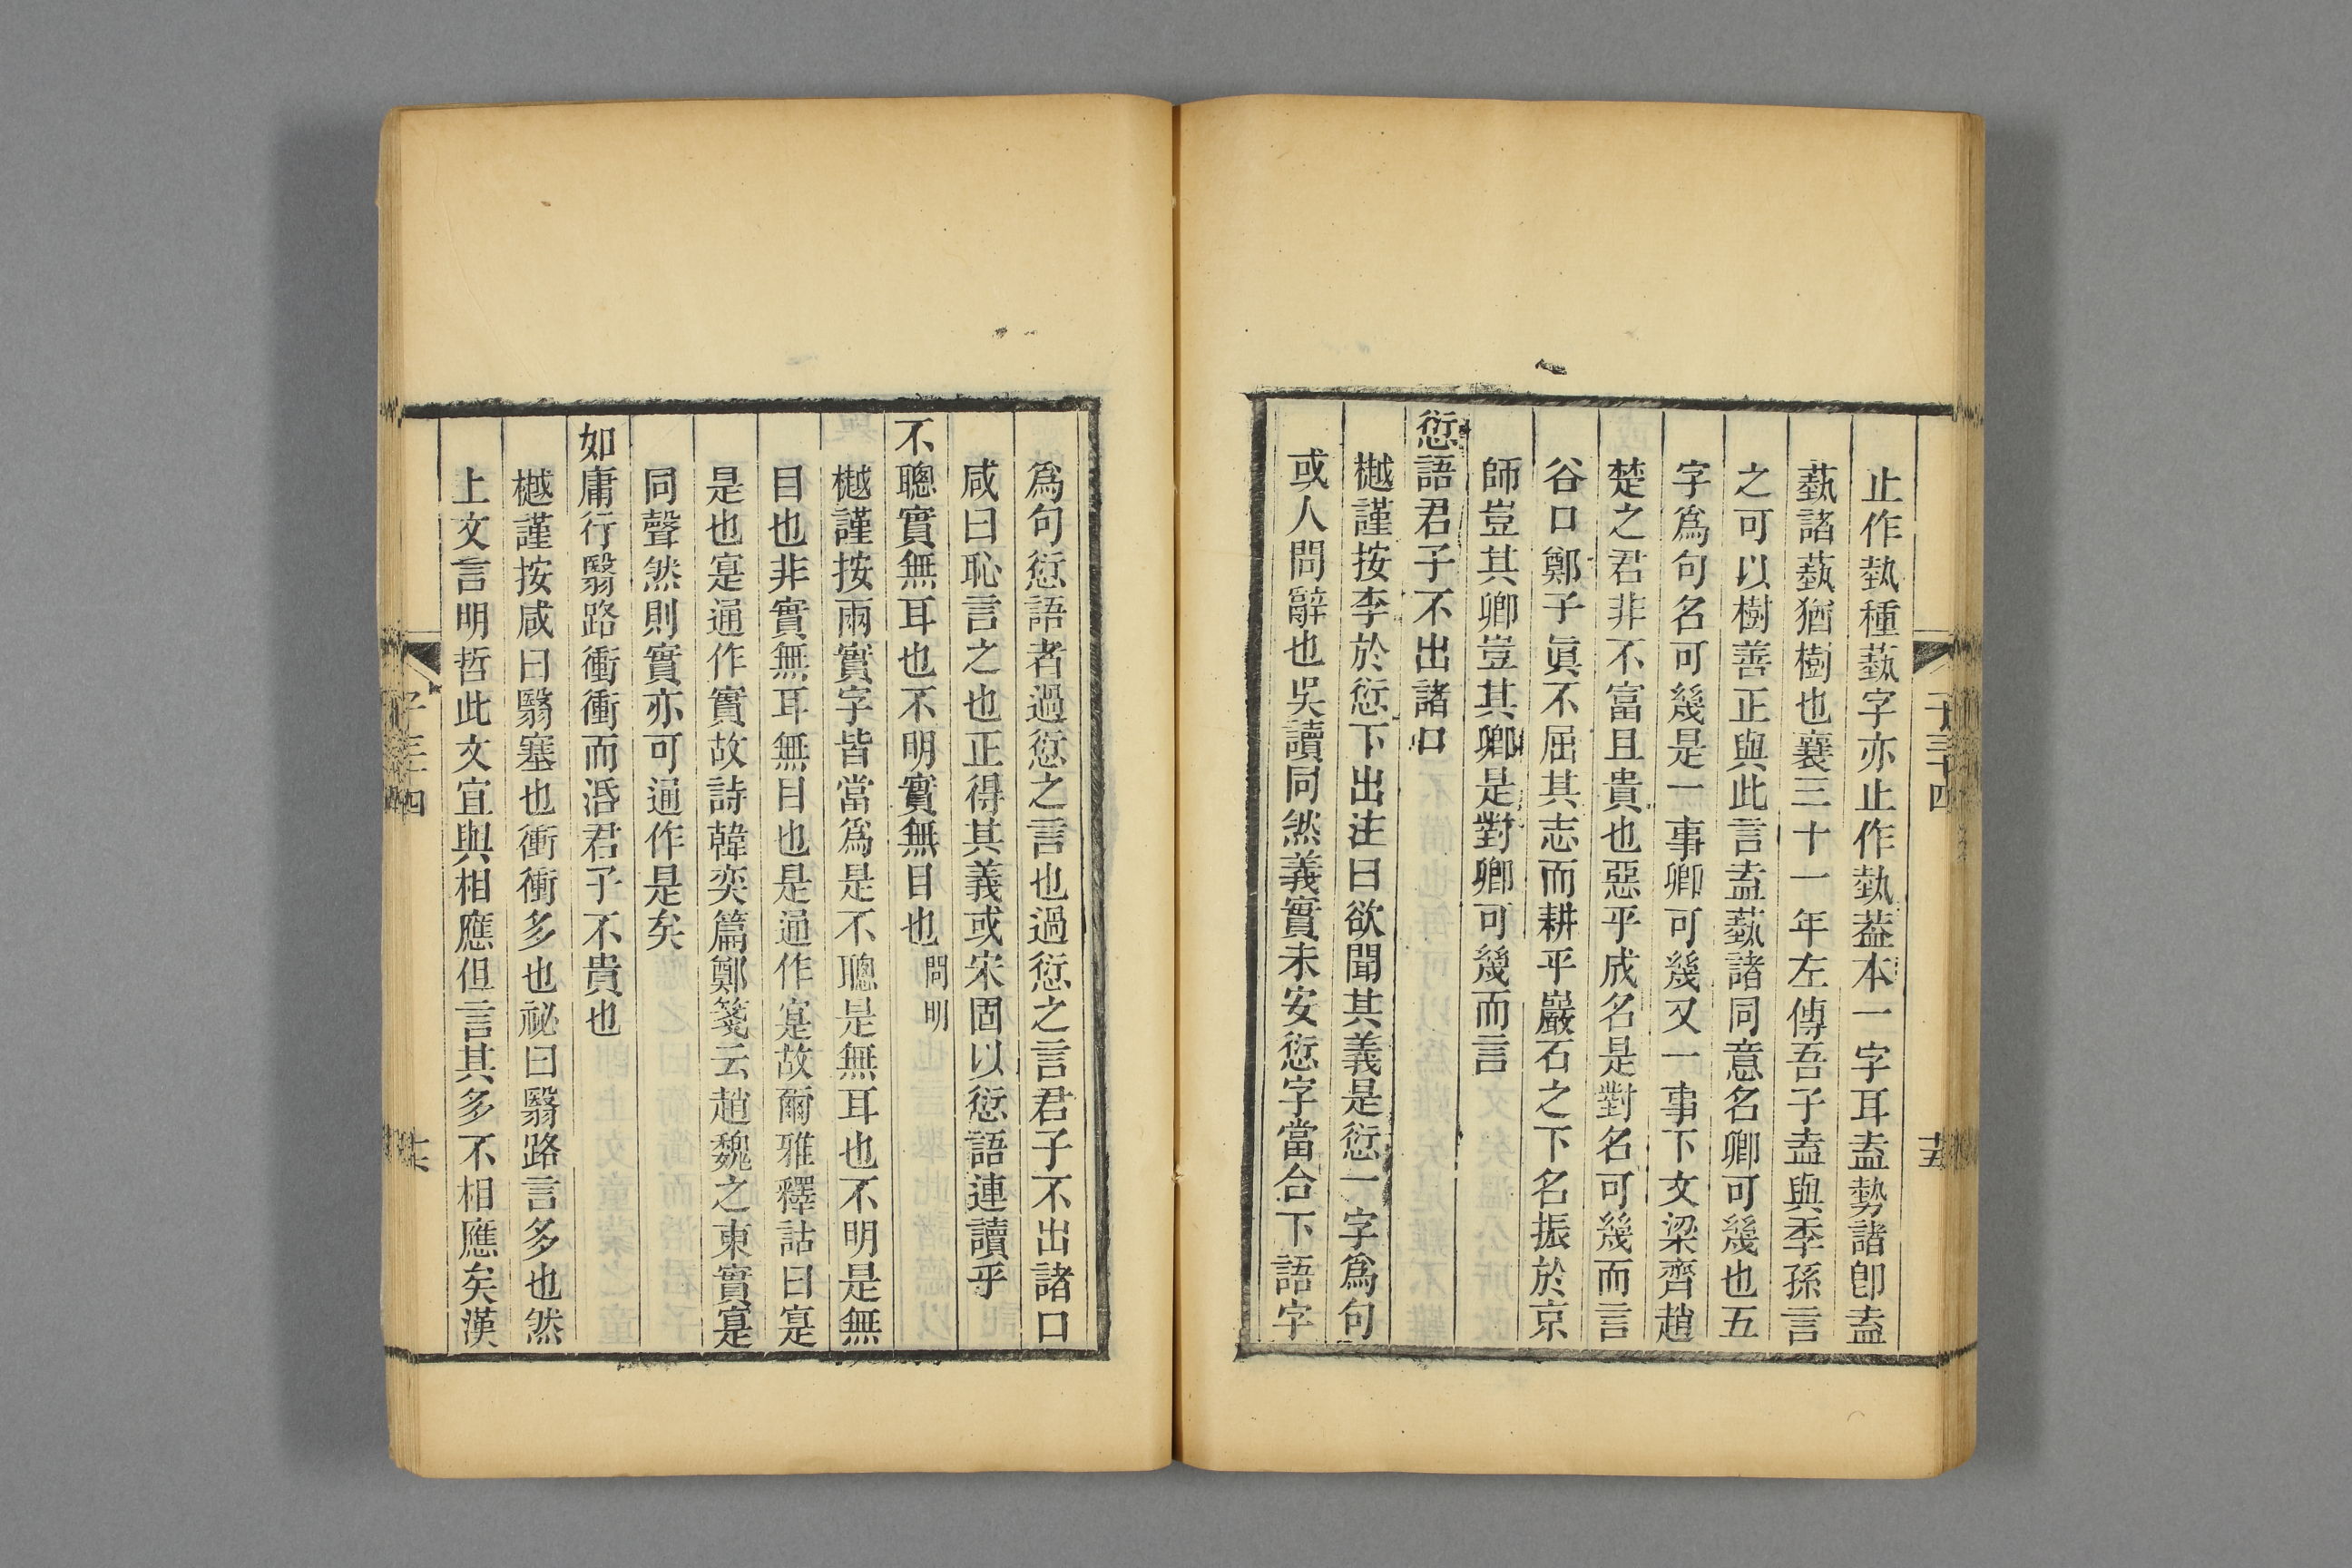 止作埶種蓺字亦止作埶葢本一字耳盍勢諸卽盍
蓺諸蓺猶樹也襄三十一年左傳吾子盍與季孫言
之可以樹善正與此言盍蓺諸同意名卿可幾也五
字爲句名可幾是一事卿可幾又一事下文梁齊趙
楚之君非不富且貴也惡乎成名是對名可幾而言
谷口鄭子眞不屈其志而耕乎巖石之下名振於京
師豈其卿豈其卿是對卿可幾而言
愆語君子不出諸口
樾謹按李於愆下出注曰欲聞其義是愆一字爲句
或人問辭也吳讀同然義實未安愆字當合下語字
子三十四
十五
爲句愆語者過愆之言也過愆之言君子不出諸口
咸曰恥言之也正得其義或宋固以愆語連讀乎
不聰實無耳也不明實無目也問明
樾謹按兩實字皆當爲是不聰是無耳也不明是無
目也非實無耳無目也是通作寔故爾雅釋詁曰寔
是也寔通作實故詩韓奕篇鄭箋云趙魏之東實寔
同聲然則實亦可通作是矣
如庸行翳路衝衝而涽君子不貴也
樾謹按咸曰翳塞也衝衝多也祕曰翳路言多也然
上文言明哲此文宜與相應但言其多不相應矣漢
子三十四
十六